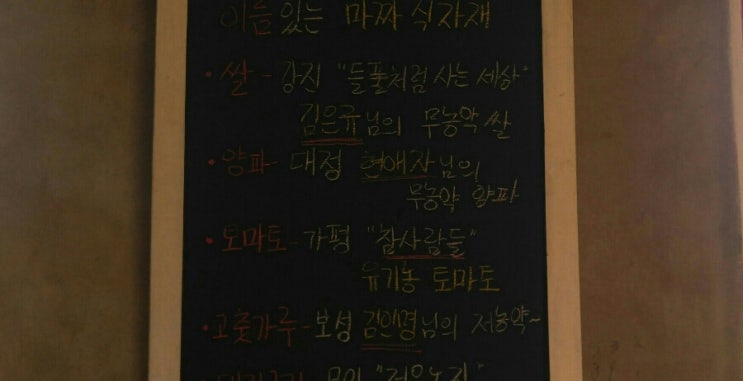 이름 있는 마짜 식자재
• 쌀 - 강진 "들풀처럼 사는 세상"
김은규님의 무농약 쌀
• 양파 - 대정 현애자님의
무농약 양파
• 토마토 - 가평 "참사람들"
유기농 토마토
• 고춧가루 - 보성 님의 저농약~